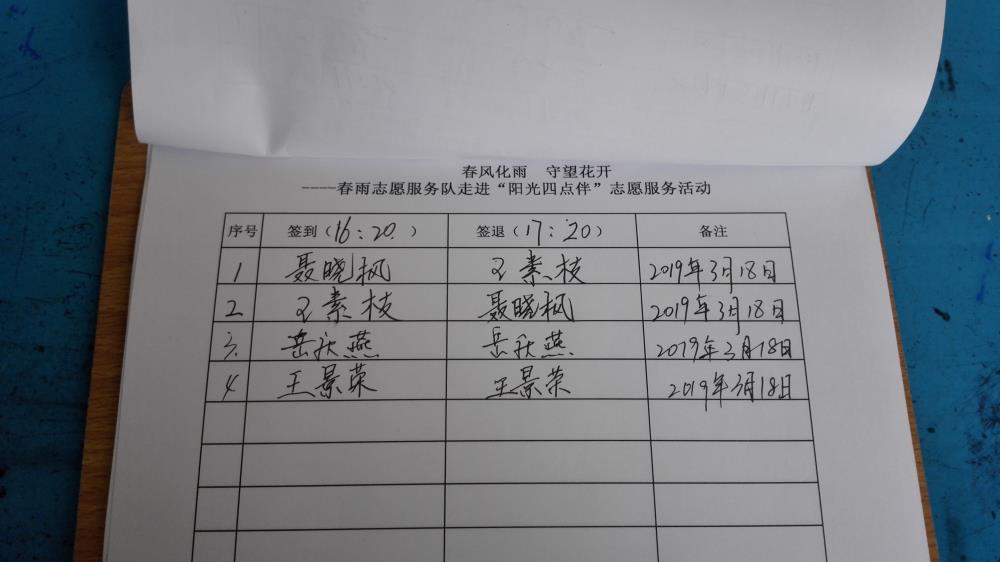 春风化雨 守望花开
----春雨志愿服务队走进“阳光四点伴”志愿服务活动
序号 签到(16:20) 签退(17:20) 备注
1 聂晓枫 王素枝 2019年3月18日
2 王素枝 聂晓枫 2019年3月18日
3. 岳秋燕 岳秋燕 2019年3月18日
4 王景荣 王景荣 2019年3月18日